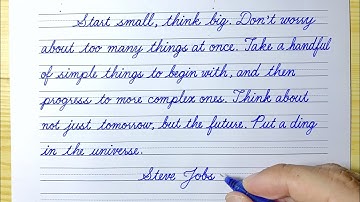 Start small, think big. Don't worry
about too many things at once. Take a handful
of simple things to begin with, and then
progress to more complex ones. Think about
not just tomorrow, but the future. Put a ding
in the universe.
Steve Jobs